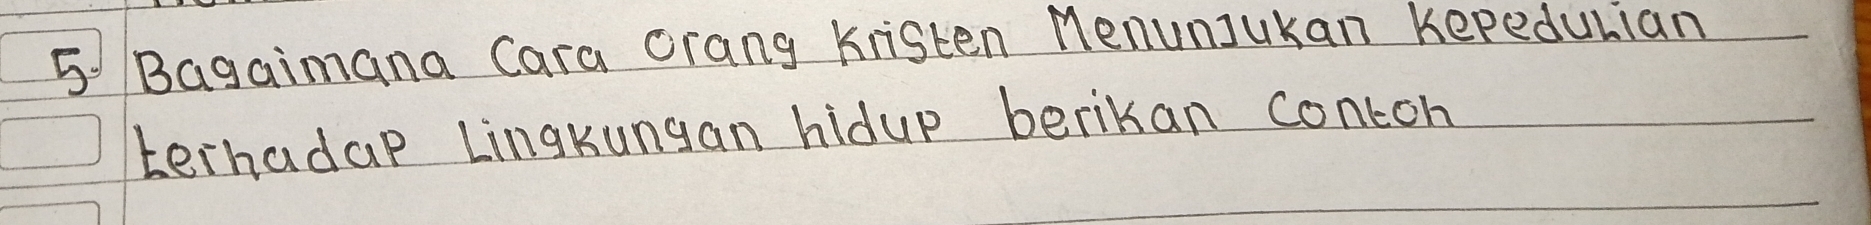 5. Bagaimana Cara orang Kristen Menunjukan Kepedulian
terhadap Lingkungan hidup berikan contoh